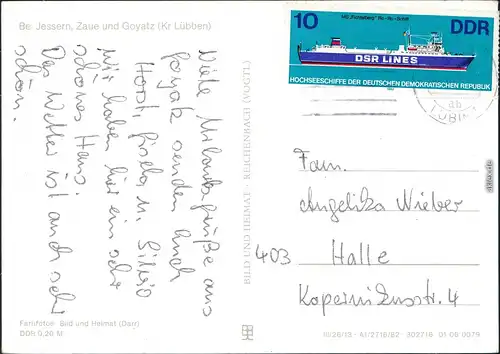 Bei Jessern, Zaue und Goyatz (Kr Lübben)
Viele Urlaubsgrüße aus
Goyatz senden Euch
Horst, Gisela u. Silvio
Wir haben hier ein sehr
schönes Haus.
Das Wetter ist auch sehr
schön.
Farbfotos: Bild und Heimat (Darr)
DDR 0,20 M
BILD UND HEIMAT · REICHENBACH (VOGTL)
10
MS „Fichtelberg“ Ro-Ro-Schiff
DDR
DSR LINES
HOCHSEESCHIFFE DER DEUTSCHEN DEMOKRATISCHEN REPUBLIK
Fam.
Angelika Wieber
403 Halle
Kopernikusstr. 4
A1/2716/82 302716 01 06 0079